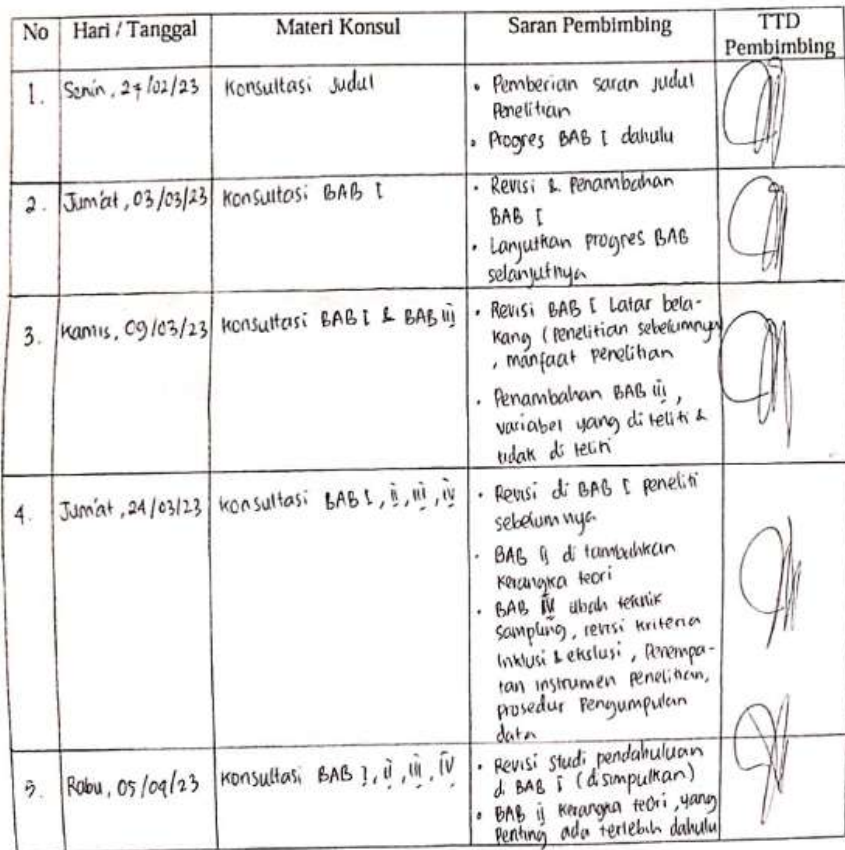 No Hari / Tanggal Materi Konsul Saran Pembimbing TTD
Pembimbing
1. Senin, 27/02/23 Konsultasi Judul • Pemberian saran judul
Penelitian
• Progres BAB I dahulu
2. Jum'at, 03/03/23 Konsultasi BAB I • Revisi & Penambahan
BAB I
• Lanjutkan progres BAB
selanjutnya
3. Kamis, 09/03/23 Konsultasi BAB I & BAB iii • Revisi BAB I Latar bela-
kang (Penelitian sebelumnya
, manfaat penelitian
• Penambahan BAB iii,
variabel yang di teliti &
tidak di teliti
4. Jum'at, 24/03/23 Konsultasi BAB I, ii, iii, iv • Revisi di BAB I peneliti
sebelumnya
• BAB ii di tambahkan
kerangka teori
• BAB IV ubah teknik
sampling, revisi kriteria
inklusi & ekslusi, Penempa-
tan instrumen penelitian,
prosedur Pengumpulan
data
5. Rabu, 05/04/23 Konsultasi BAB I, ii, iii, IV • Revisi Studi pendahuluan
di BAB I (disimpulkan)
• BAB ii kerangka teori, yang
Penting ada terlebih dahulu